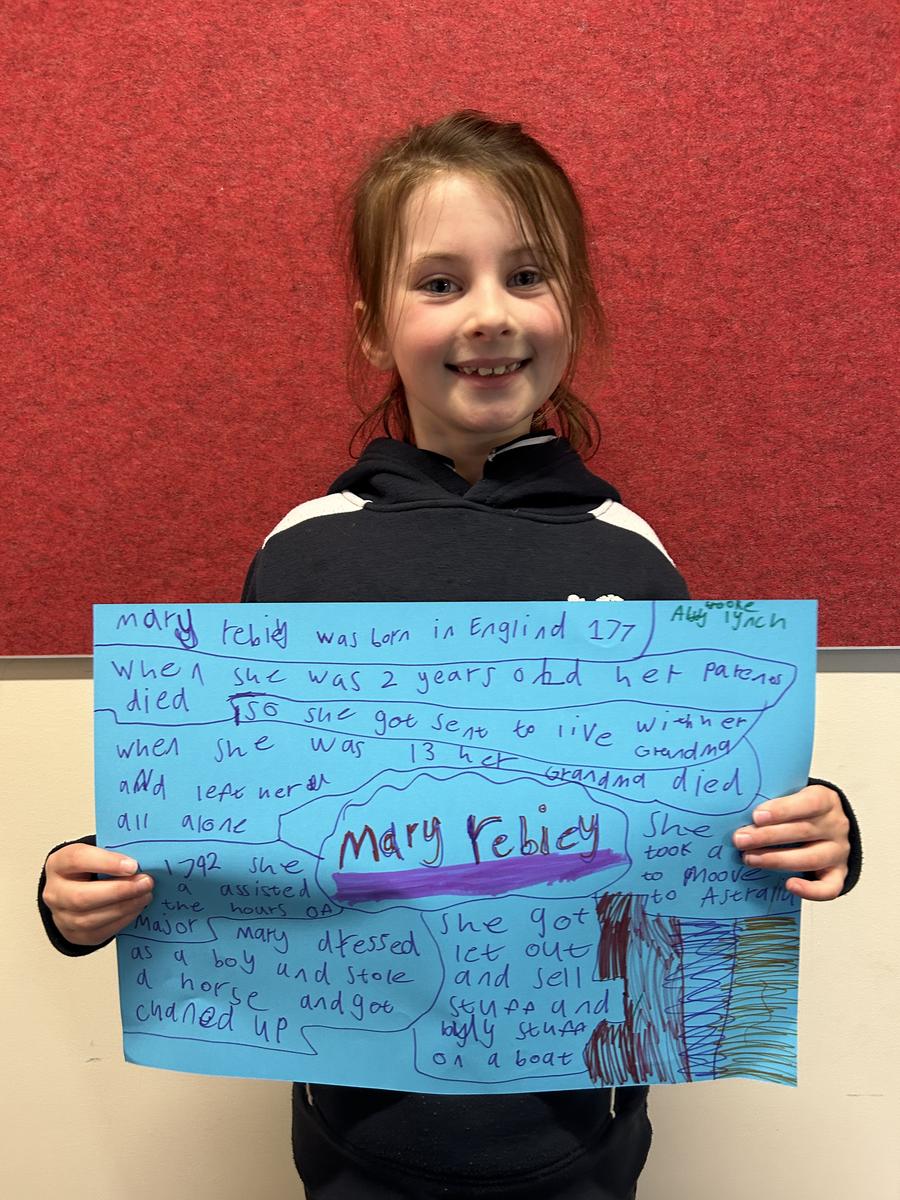 mary rebiey was born in Englind 177
Abby lynch
brooke
when she was 2 years old her parenos
died
so she got sent to live with her
Grandma
when she was 13 her
Grandma died
and left her
all alone
Mary rebiey
She
took a
to Moove
to Astralia
1792 she
a assisted
the hours of
Major
mary dressed
as a boy and stole
a horse and got
chaned up
she got
let out
and sell
stuff and
stuff
on a boat